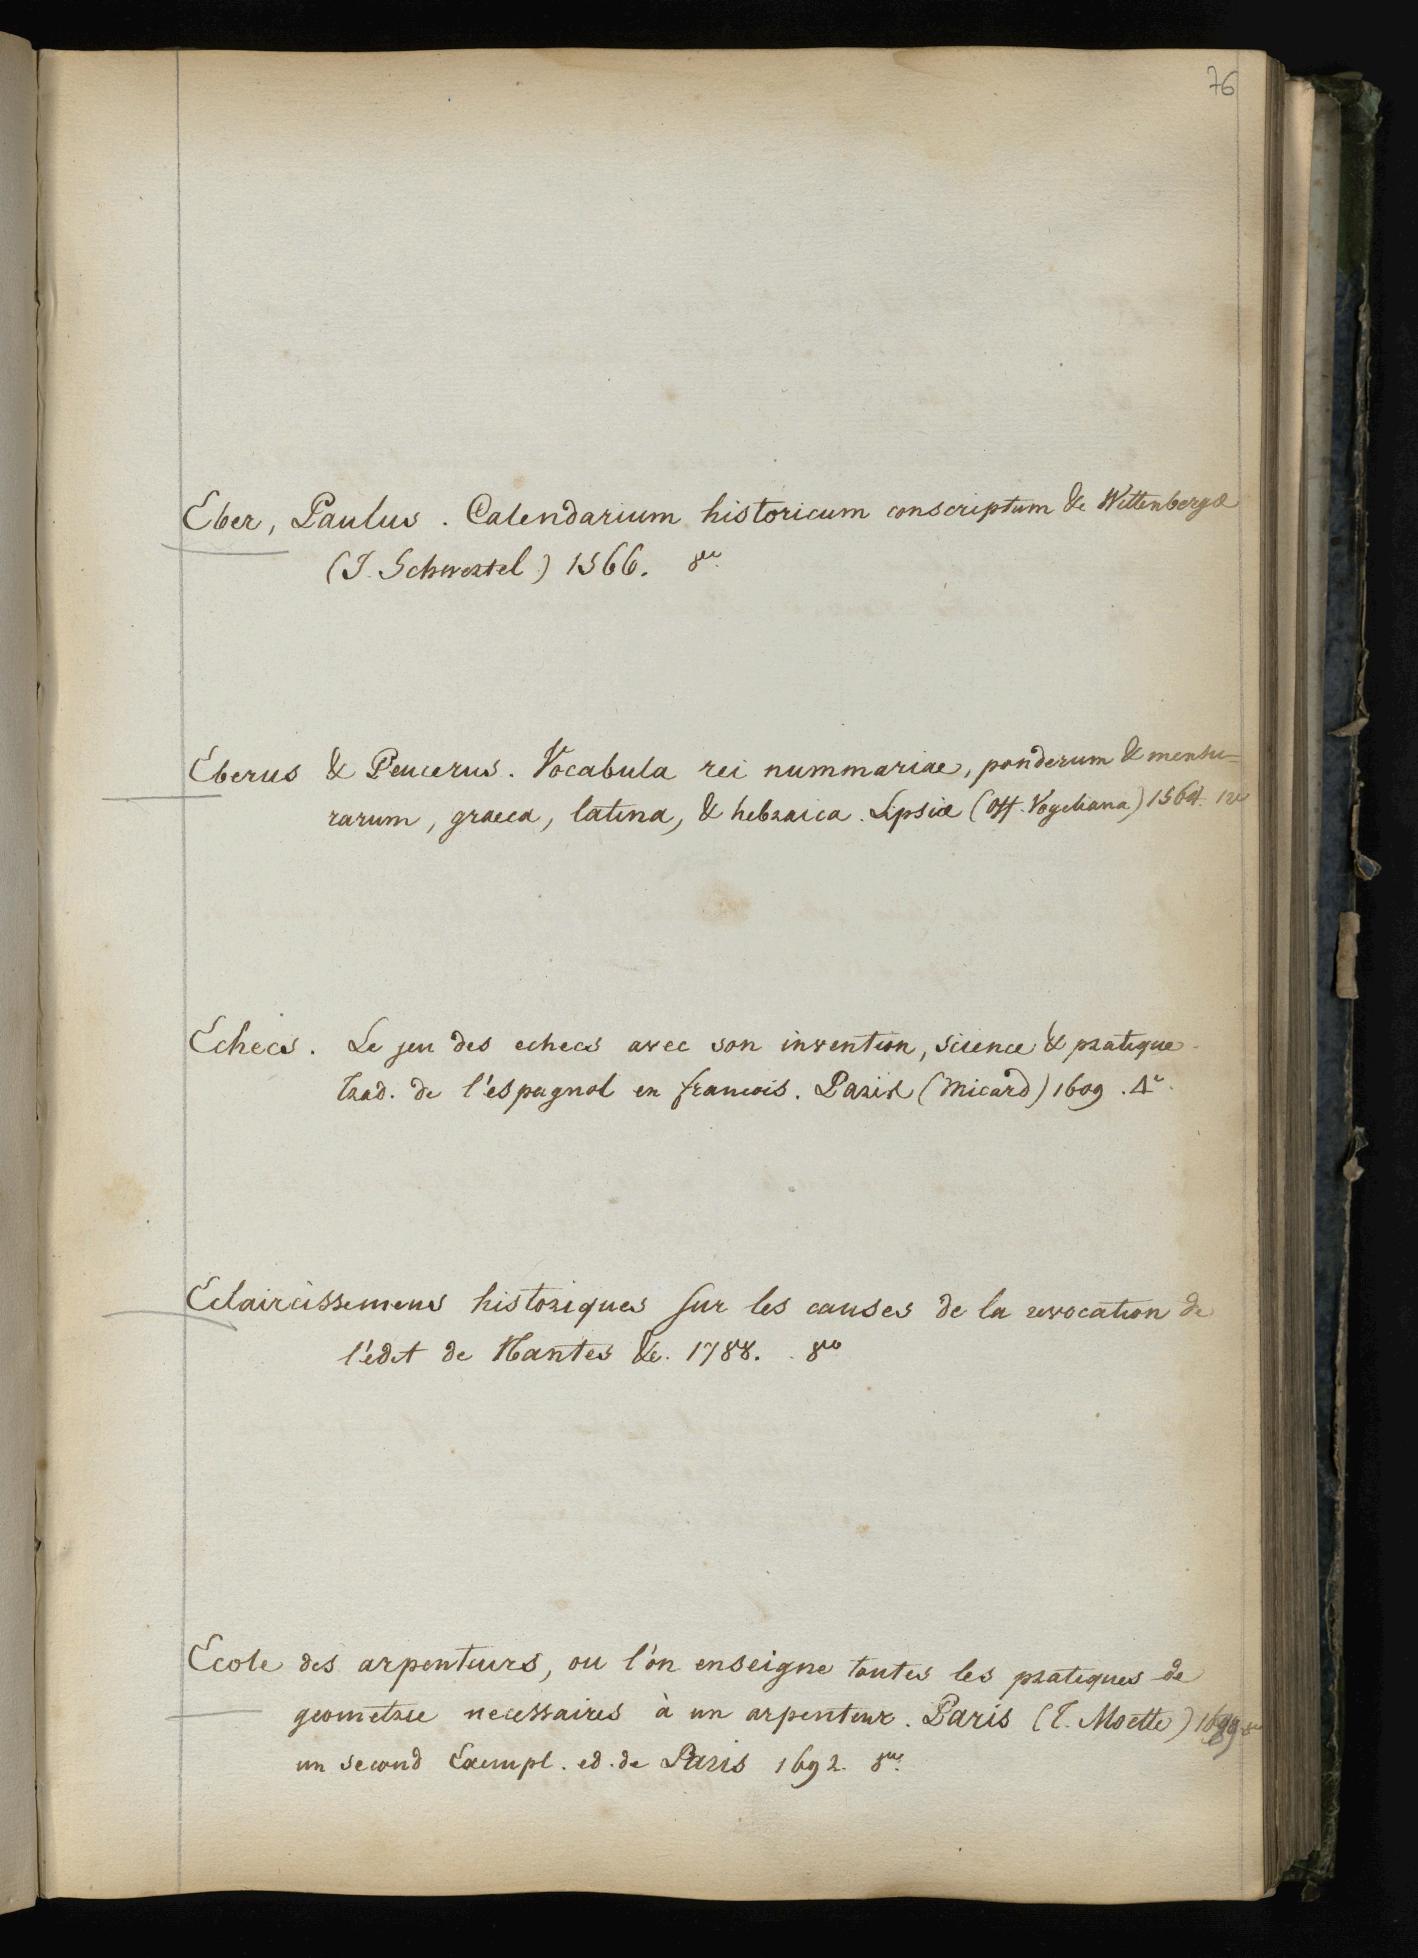 76
Eber, Paulus. Calendarium historicum conscriptum &c Wittenbergæ
(J. Schwertel) 1566. 8vo.
Eberus & Peucerus. Vocabula rei nummariae, ponderum & mensu-
rarum, graeca, latina, & hebraica. Lipsiæ (Off. Vogeliana) 1564. 12e
Echecs. Le jeu des echecs avec son invention, science & pratique.
trad. de l'espagnol en francois. Paris (Micard) 1609. 4e.
Eclaircissemens historiques sur les causes de la revocation de
l'édit de Nantes &c. 1788. 8vo
Ecole des arpenteurs, ou l'on enseigne toutes les pratiques de
geometrie necessaires à un arpenteur. Paris (T. Moette) 8vo
un second Exempl. ed. de Paris 1692. 8vo.